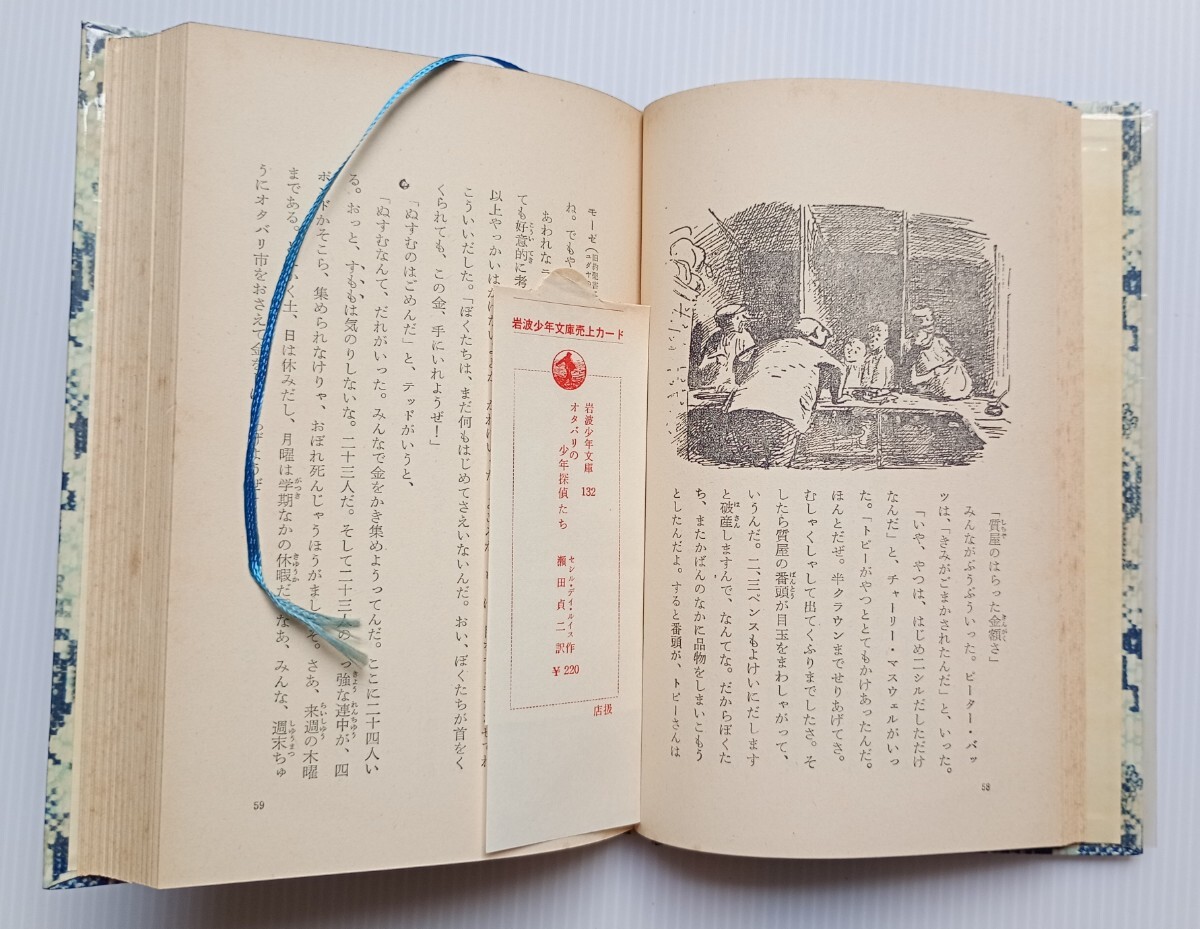 「質屋のはらった金額さ」
みんながぶうぶういった。ピーター・バッ
ツは、「きみがごまかされたんだ」と、いった。
「いや、やつは、はじめ二シルだしただけ
なんだ」と、チャーリー・マスウェルがいっ
た。「トビーがやつととてもかけあったんだ。
ほんとだぜ。半クラウンまでせりあげてさ。
むしゃくしゃして出てくふりまでしたさ。そ
したら質屋の番頭が目玉をまわしゃがって、
いうんだ。二、三ペンスもよけいにだします
と破産しますんで、なんてな。だからぼくた
ち、またかばんのなかに品物をしまいこもう
としたんだよ。すると番頭が、トビーさんは
58
モーゼ
ね。でもや
あわれな
ても好意的に考
以上やっかいは
こういいだした。「ぼくたちは、まだ何もはじめてさえいないんだ。おい、ぼくたちが首をく
くられても、この金、手にいれようぜ!」
「ぬすむのはごめんだ」と、テッドがいうと、
「ぬすむなんて、だれがいった。みんなで金をかき集めようってんだ。ここに二十四人い
る。おっと、すももは気のりしないな。二十三人だ。そして二十三人の っ強な連中が、四
ポンドかそこら、集められなけりゃ、おぼれ死んじゃうほうがまし そ。さあ、来週の木曜
まである。 く土、日は休みだし、月曜は学期なかの休暇だ なあ、みんな、週末ちゅ
うにオタバリ市をおさえて金を げようぜ
59
岩波少年文庫売上カード
岩波少年文庫 132
オタバリの
少年探偵たち
セシル・デイ・ルイス作
瀬田貞二訳
¥220
扱店